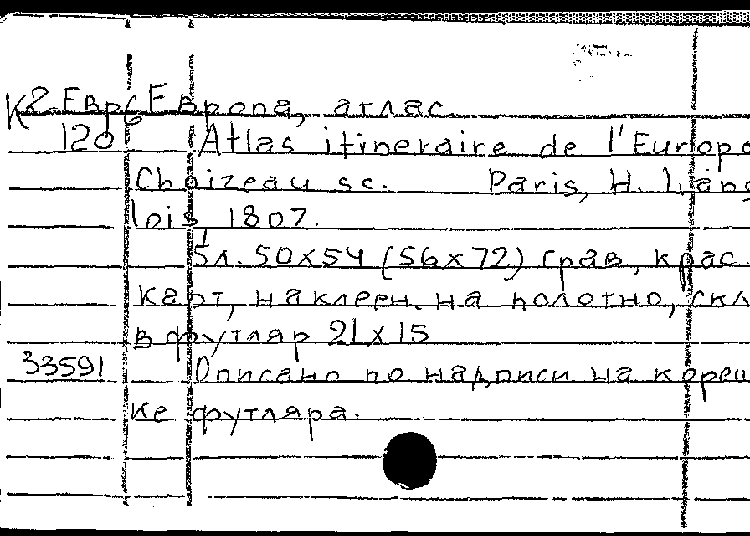 К2-Евр6 Европа, атлас.
120 Atlas itineraire de l'Europe
Choizeau sc. Paris, H. Lang
lois 1807.
1
5л. 50x54 (56x72) грав, крас.
карт, наклеен. на полотно, скл
в футляр 21x15
33591 Описано по надписи на кореш
ке футляра.